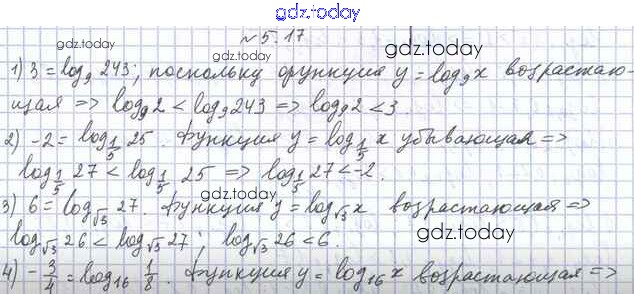 gdz.today
№ 5.17
gdz.today
1) 3 = log₉ 243; поскольку функция y = log₉x возрастаю-
щая => log₉2 < log₉243 => log₉2 < 3.
gdz.today
2) -2 = log_{1/5} 25. Функция y = log_{1/5} x убывающая =>
gdz.today
log_{1/5} 27 < log_{1/5} 25 => log_{1/5} 27 < -2.
gdz.today
3) 6 = log_{√3} 27. Функция y = log_{√3} x возрастающая =>
gdz.today
log_{√3} 26 < log_{√3} 27; log_{√3} 26 < 6.
gdz.today
4) -3/4 = log₁₆ 1/8. Функция y = log₁₆x возрастающая =>
gdz.today